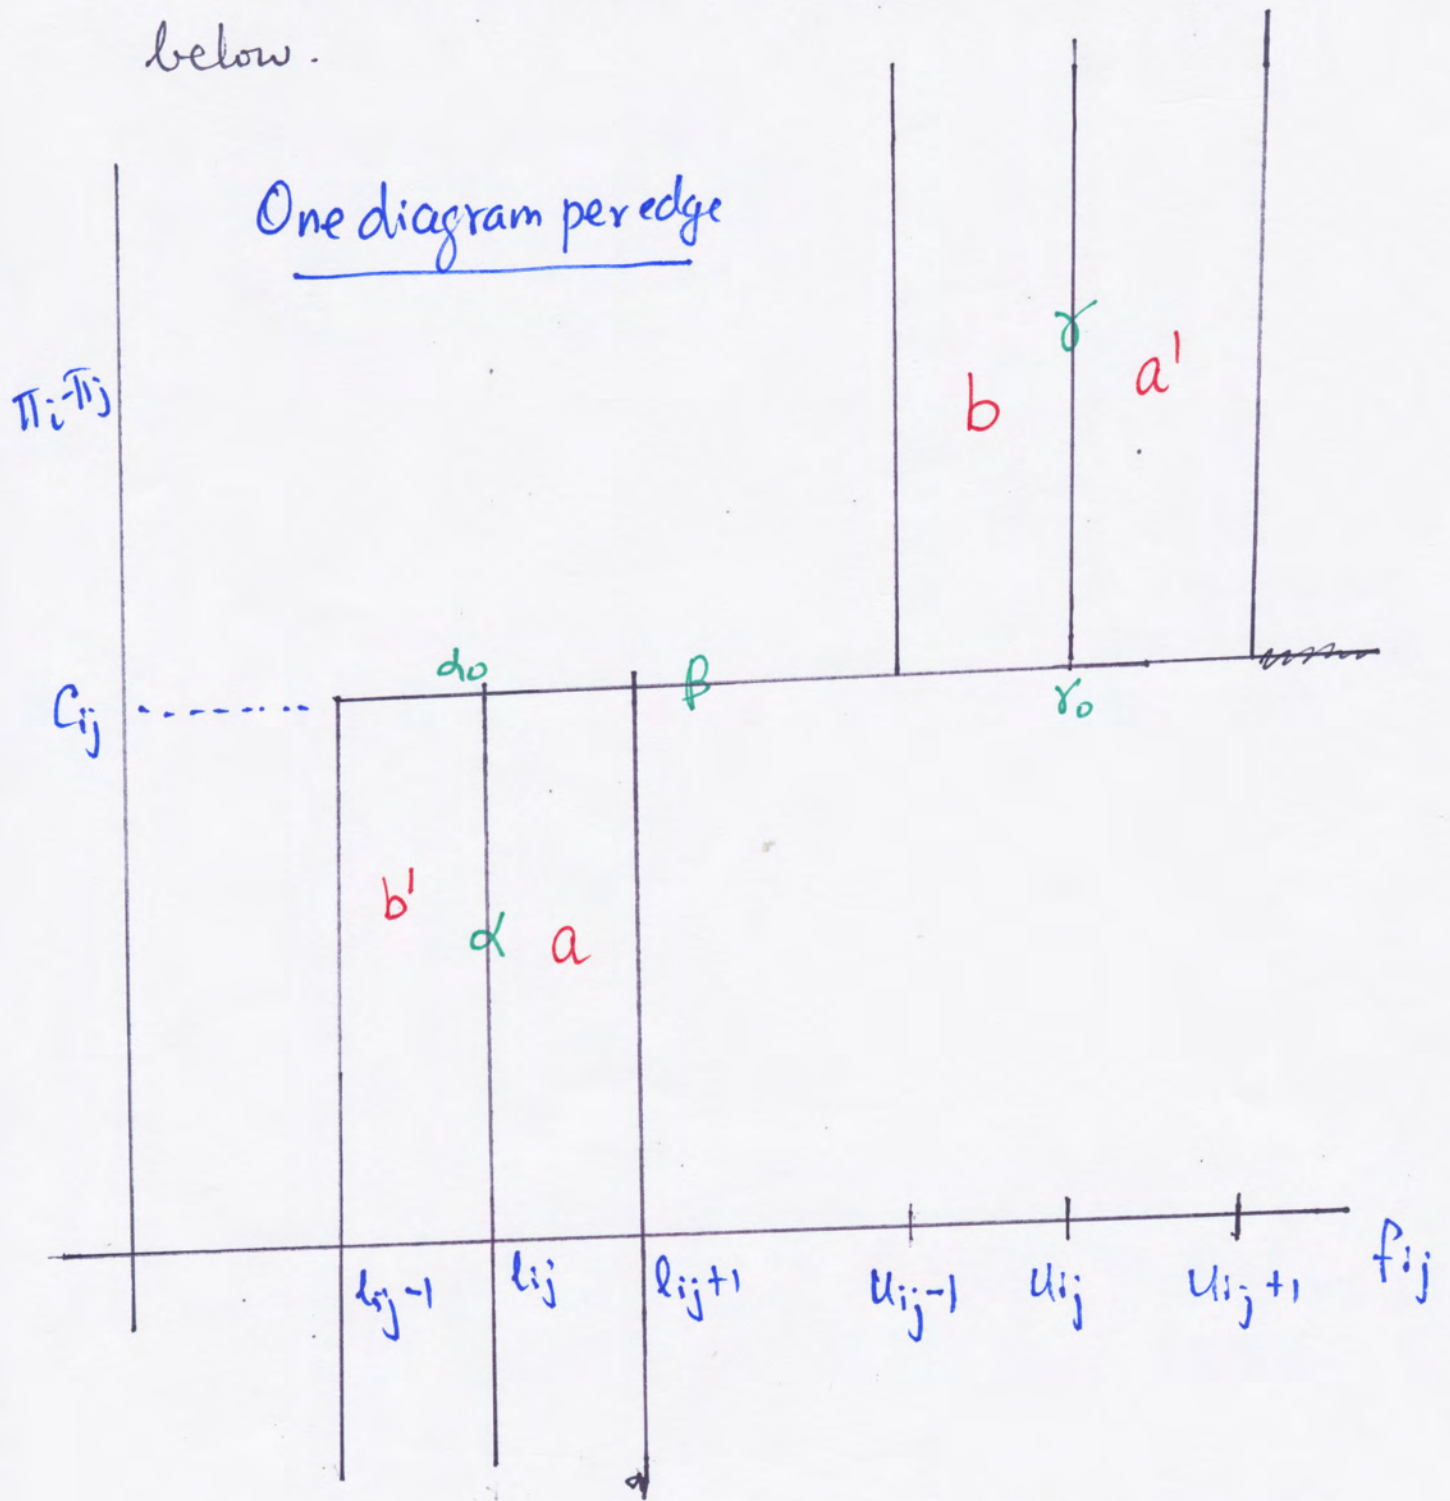 below.
One diagram per edge
πi-πj
γ
a'
b
α0
β
Cij
γ0
b'
α
a
lij-1
lij
lij+1
uij-1
uij
uij+1
fij